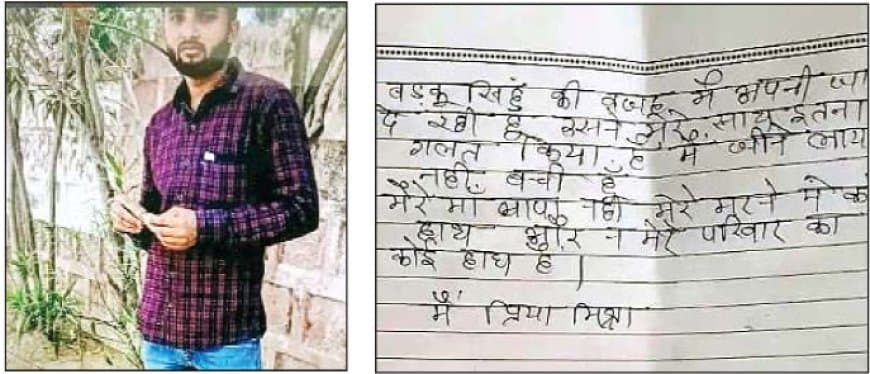 बड़कू सिंह की वजह में अपनी जा
दे रही हूं उसने मेरे साथ इतना
गलत किया है मैं जीने लाय
नहीं बची हूँ
मेरे मां बापा नही मेरे मरने मे क
हाथ और न मेरे परिवार का
कोई हाथ है।
मैं प्रिया मिश्रा